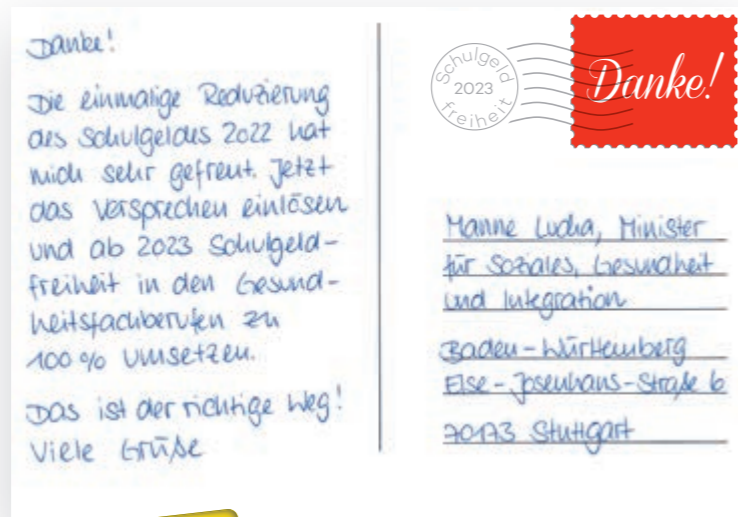 Danke!
Die einmalige Reduzierung
des Schulgeldes 2022 hat
mich sehr gefreut. Jetzt
das Versprechen einlösen
und ab 2023 Schulgeld-
freiheit in den Gesund-
heitsfachberufen zu
100% umsetzen.
Das ist der richtige Weg!
Viele Grüße
Schulgeld
2023
freiheit
Danke!
Manne Lucha, Minister
für Soziales, Gesundheit
und Integration
Baden-Württemberg
Else-Josenhans-Straße 6
70173 Stuttgart